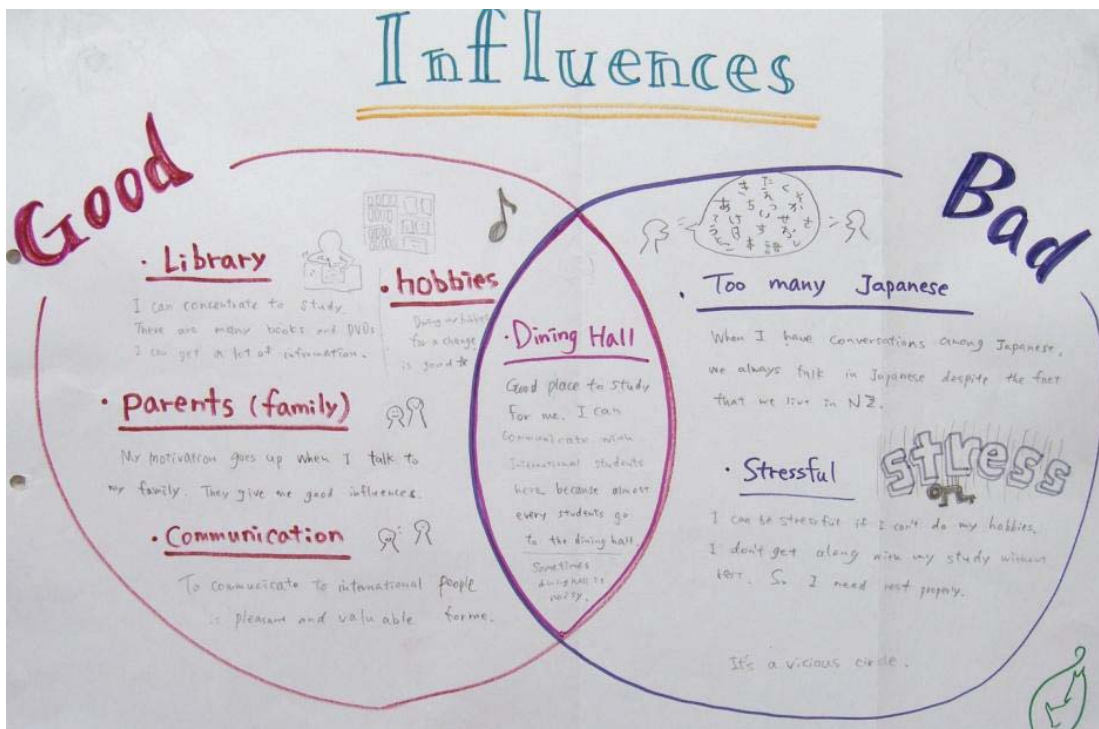 Influences
Good
Bad
· Library
I can concentrate to study.
There are many books and DVDs
I can get a lot of information.
· hobbies
Doing my hobbies
for a change
is good
· parents (family)
My motivation goes up when I talk to
my family. They give me good influences.
· Communication
To commucicate to international people
is pleasant and valuable for me.
· Dining Hall
Good place to study
for me. I can
communicate with
International students
here because almost
every students go
to the dining hall.
Sometimes
dining hall is
noisy.
· Too many Japanese
When I have conversations among Japanese,
we always talk in Japanese despite the fact
that we live in NZ.
· Stressful
stress
I can be stressful if I can't do my hobbies.
I don't get along with my study without
rest. So I need rest properly.
It's a vicious circle.